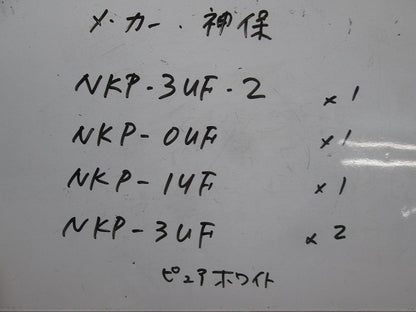 メーカー.神保
NKP-3UF-2 ×1
NKP-0UF ×1
NKP-14F ×1
NKP-3UF ×2
ピュアホワイト